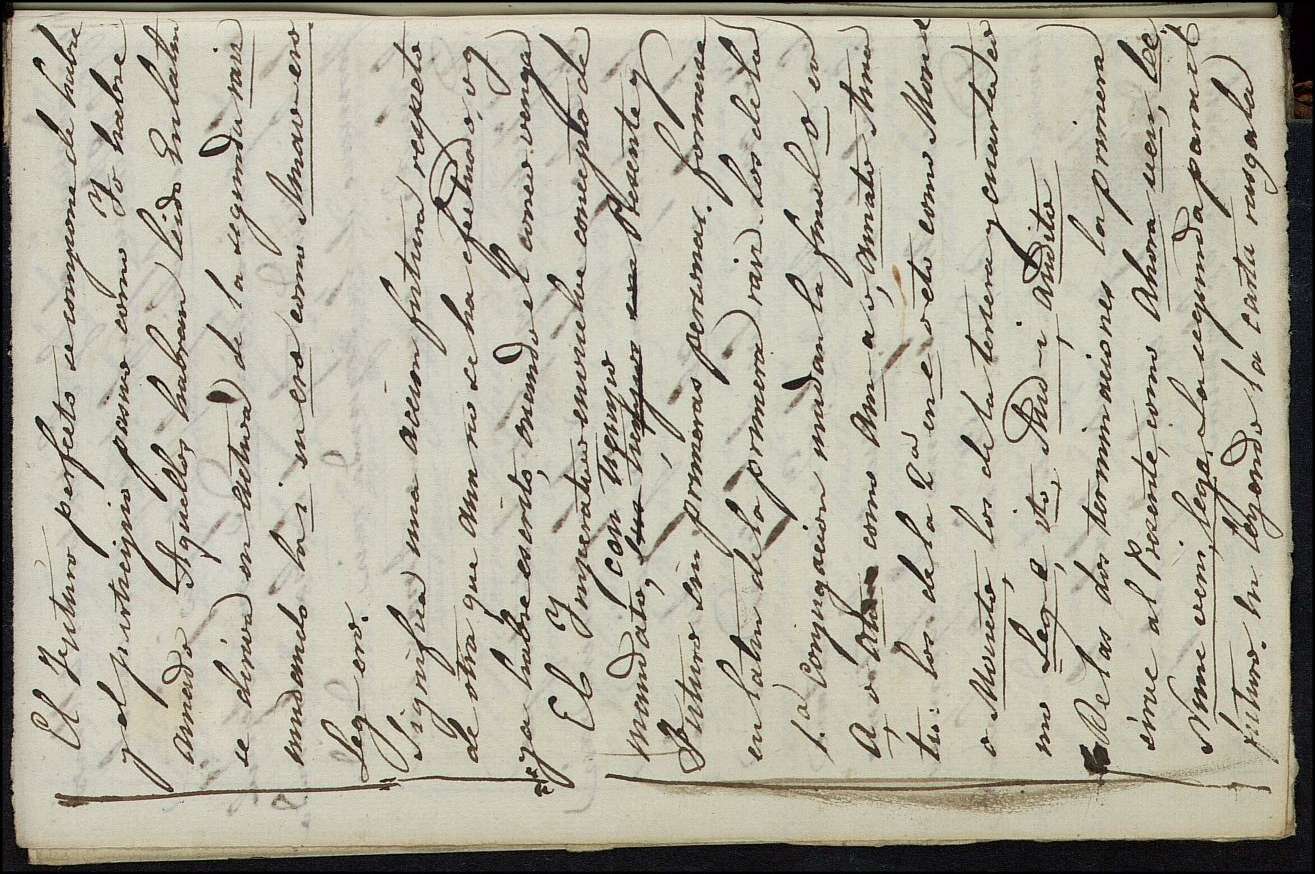 El Futuro perfecto se compone de habre
y el participio pasivo como Yo habre
amado Aquellos habran leido En latin
se deriva en activa de la segunda raiz
mudando la i in ero como Amav-ero.
Leg-ero.
Significa una accion futura respeto
de otra que aun no se ha efectuado, v g
ya habre escrito, cuando el correo venga
El Imperativo envuelve concepto de
mandato, con Tiempo Presente y
Futuro sin primeras personas. formense
en latin de la primera raiz los de la
1.a Conjugacion mudan la final o, en
A o como Am-a o, Amato Ama
tu: los de la 2.a en e o eto como Mone
o Moneto, los de la tercera y cuarta co
mo Leg-e ito, Aud-i, Audito
De las dos terminaciones la primera
sirve al Presente, como Ahora ven, lee
Nunc veni, lege La segunda para el
futuro. En llegando la carta rasgala